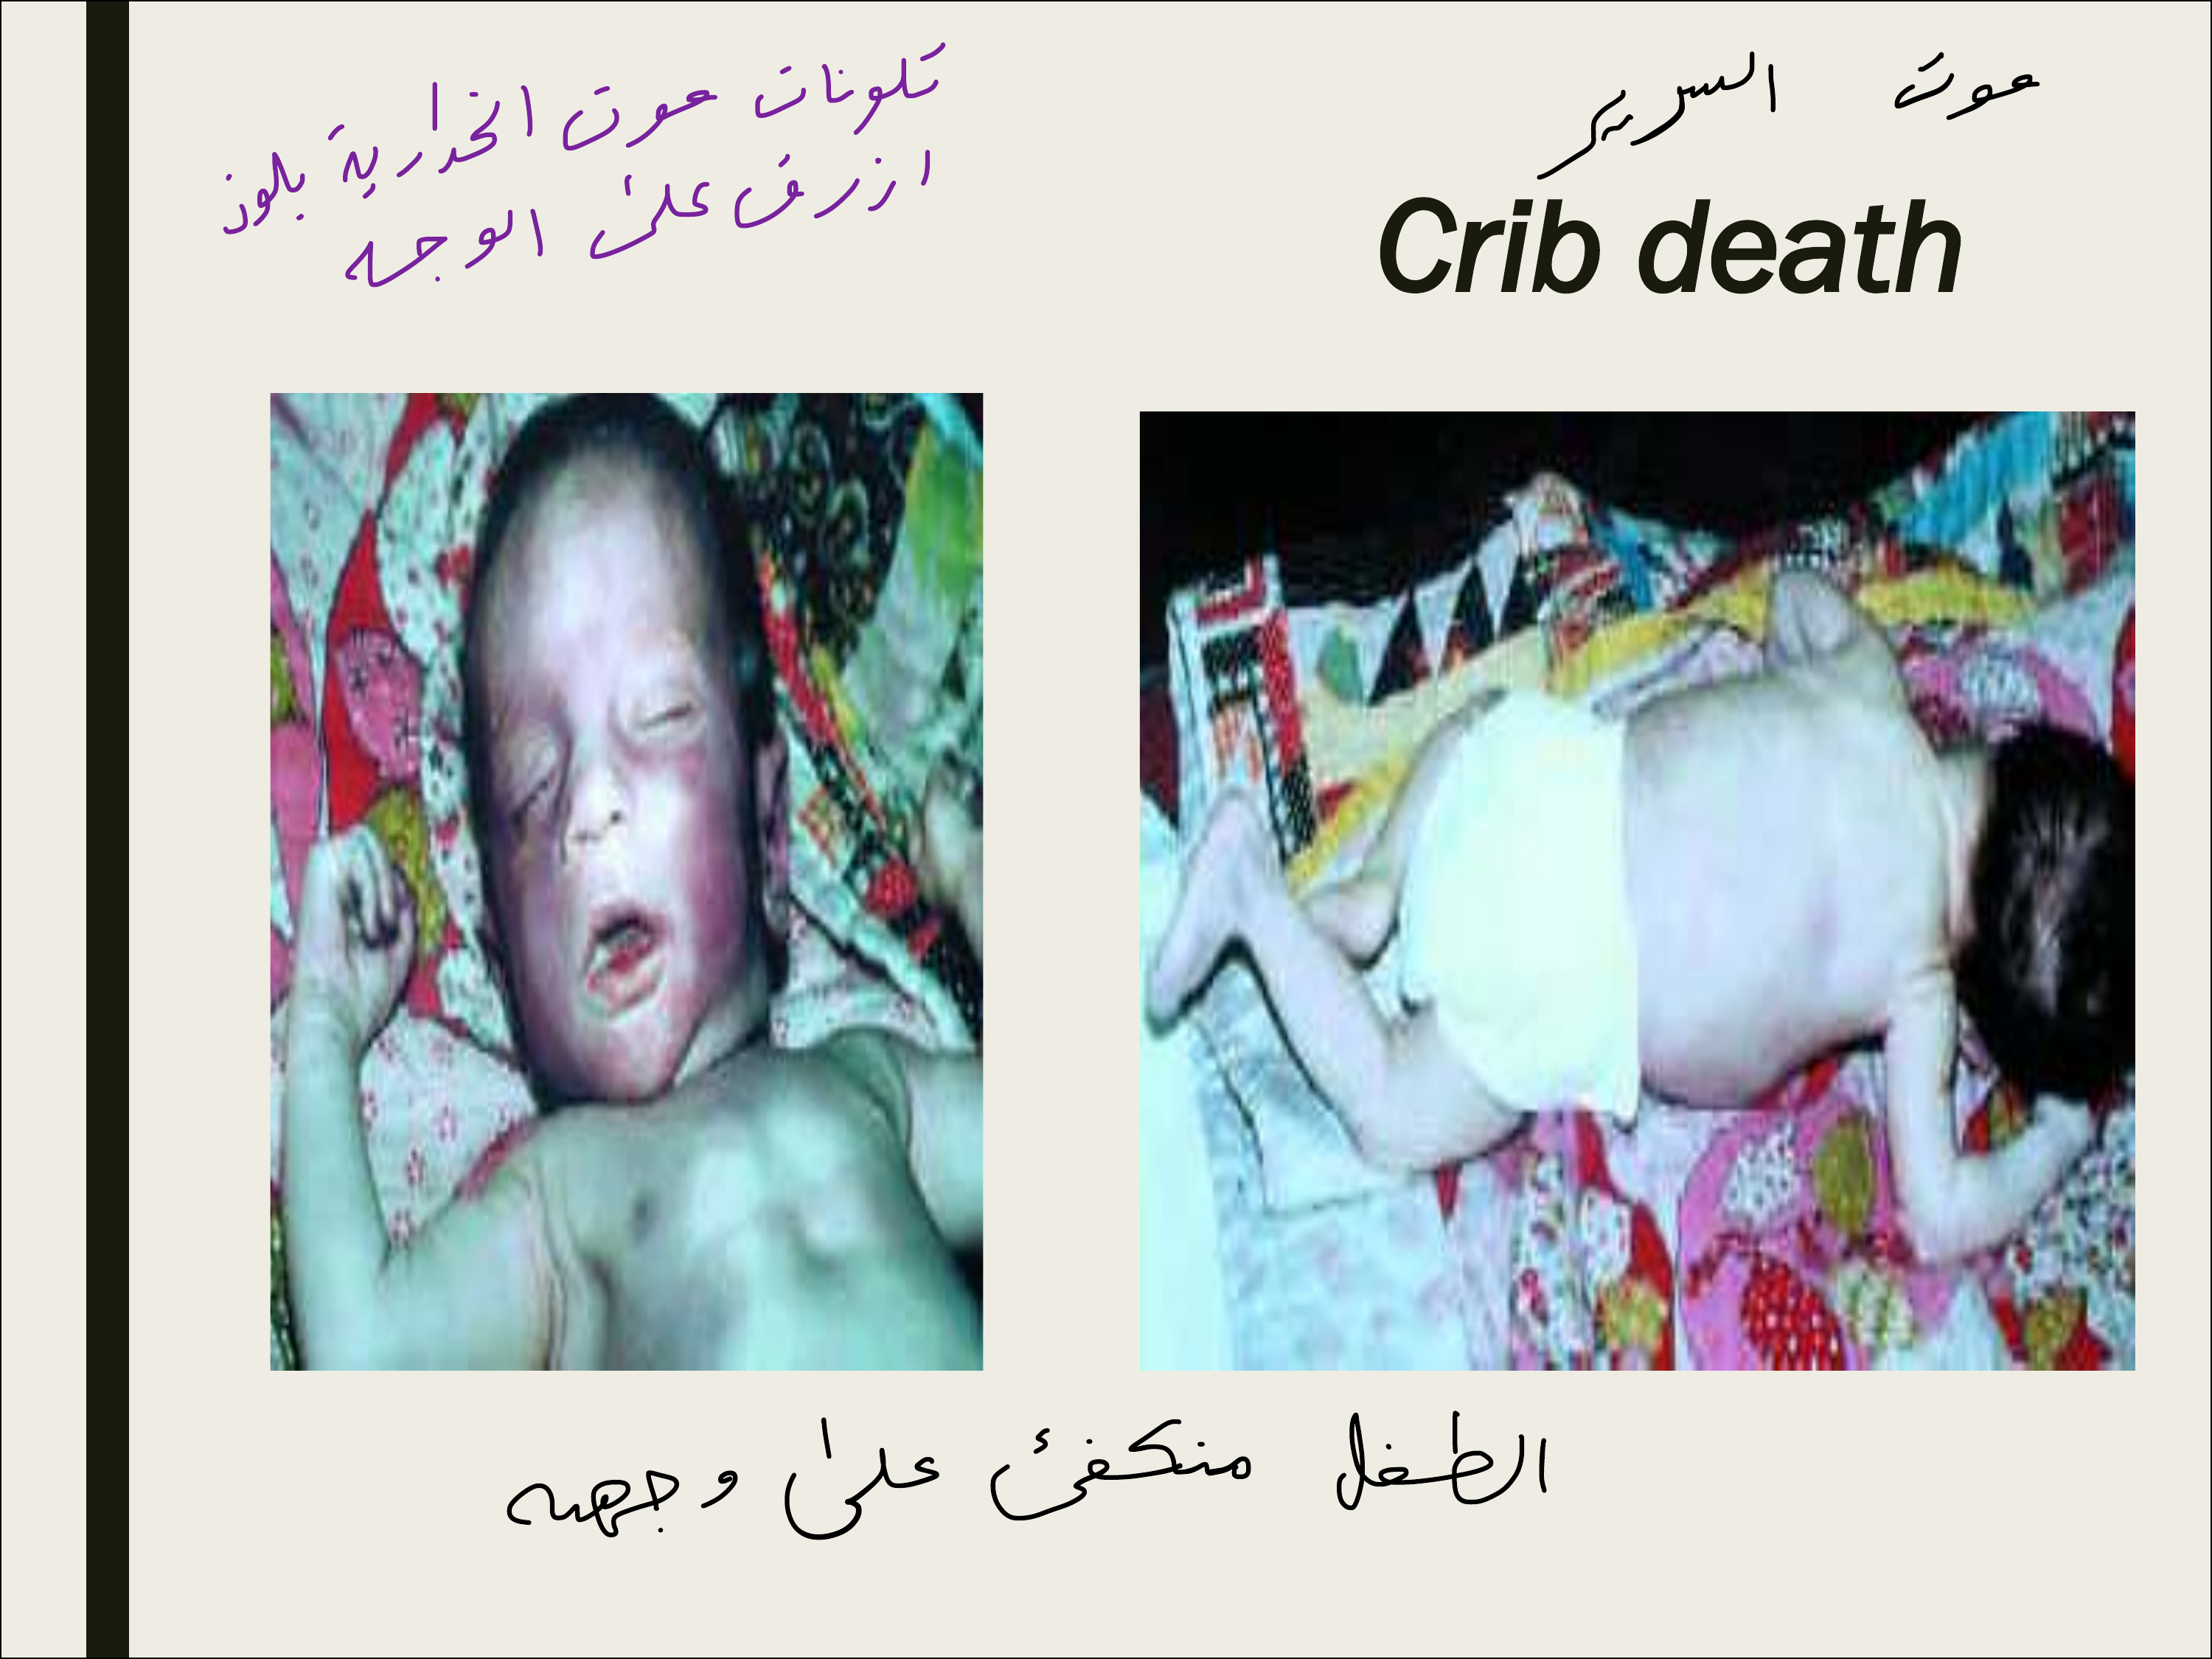 موت السرير
Crib death
تلونات موت انحدارية بلون
ازرق على الوجه
الطفل منكفئ على وجهه